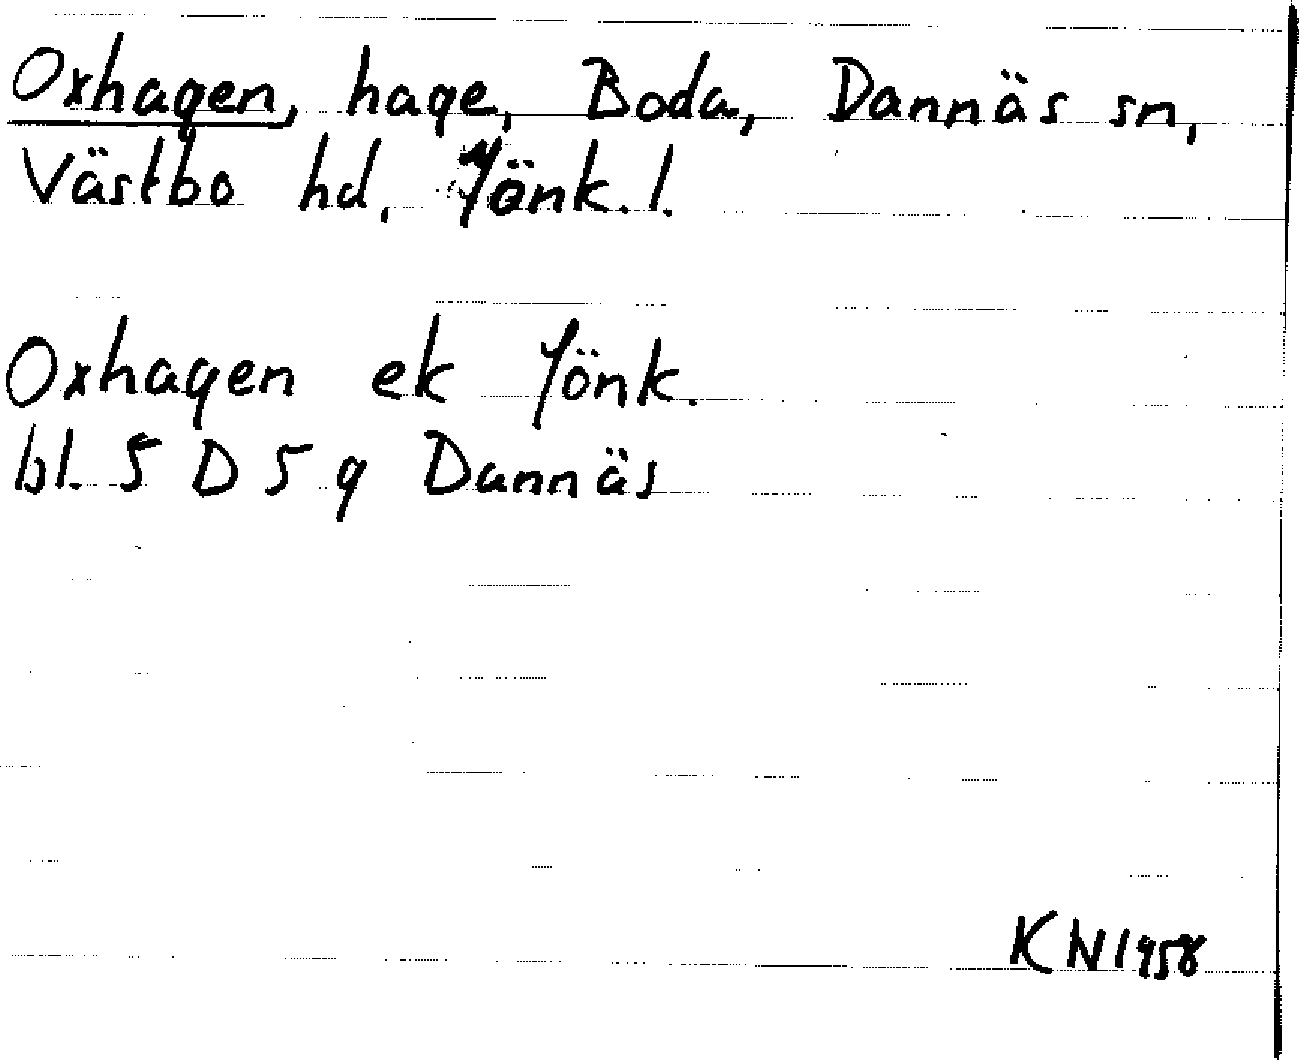 Oxhagen, hage, Boda, Dannäs sn,
Västbo hd, Jönk. l.
Oxhagen ek Jönk.
bl. 5 D 5 g Dannäs
KN 1958